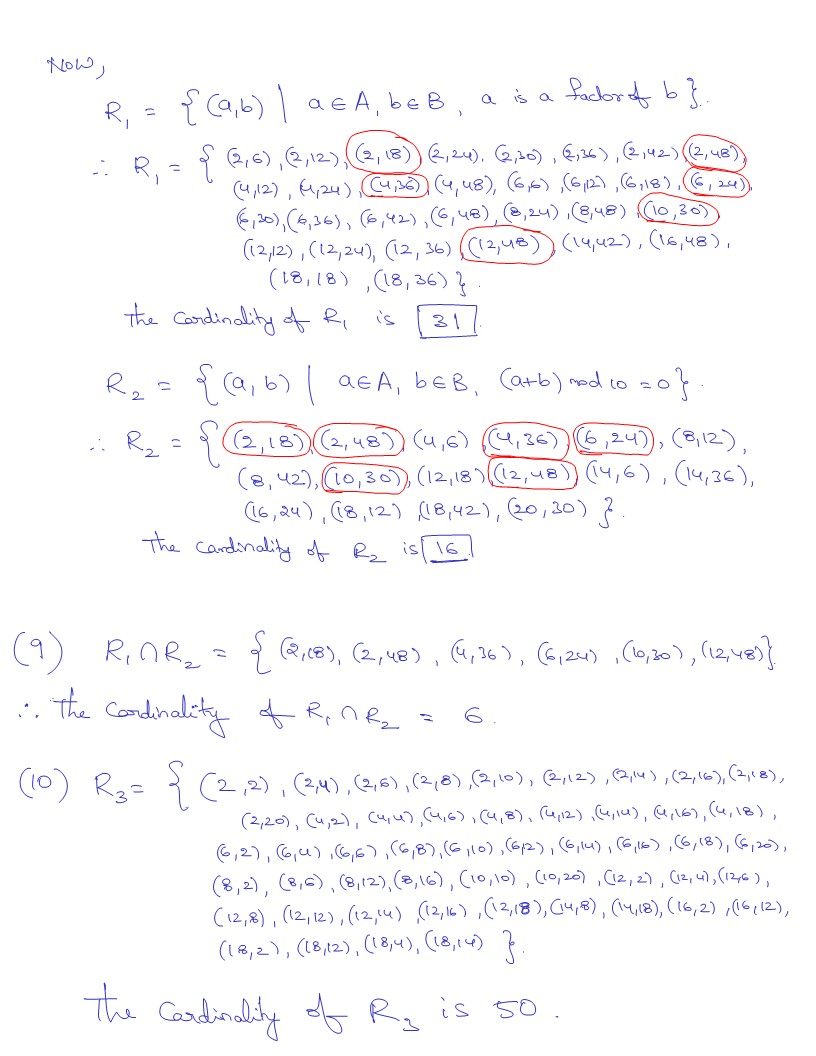 Now,
R₁ = { (a,b) | a ∈ A, b ∈ B, a is a factor of b }.
∴ R₁ = { (2,6), (2,12), (2,18), (2,24), (2,30), (2,36), (2,42), (2,48),
(4,12), (4,24), (4,36), (4,48), (6,6), (6,12), (6,18), (6,24),
(6,30), (6,36), (6,42), (6,48), (8,24), (8,48), (10,30),
(12,12), (12,24), (12,36), (12,48), (14,42), (16,48),
(18,18), (18,36) }.
The cardinality of R₁ is 31.
R₂ = { (a,b) | a∈A, b∈B, (a+b) mod 10 = 0 }.
∴ R₂ = { (2,18), (2,48), (4,6), (4,36), (6,24), (8,12),
(8,42), (10,30), (12,18), (12,48), (14,6), (14,36),
(16,24), (18,12), (18,42), (20,30) }.
The cardinality of R₂ is 16
(9) R₁ ∩ R₂ = { (2,18), (2,48), (4,36), (6,24), (10,30), (12,48) }
∴ The Cardinality of R₁ ∩ R₂ = 6.
(10) R₃ = { (2,2), (2,4), (2,6), (2,8), (2,10), (2,12), (2,14), (2,16), (2,18),
(2,20), (4,2), (4,4), (4,6), (4,8), (4,12), (4,14), (4,16), (4,18),
(6,2), (6,4), (6,6), (6,8), (6,10), (6,12), (6,14), (6,16), (6,18), (6,20),
(8,2), (8,6), (8,12), (8,16), (10,10), (10,20), (12,2), (12,4), (12,6),
(12,8), (12,12), (12,14), (12,16), (12,18), (14,8), (14,18), (16,2), (16,12),
(18,2), (18,12), (18,4), (18,14) }.
The Cardinality of R₃ is 50.